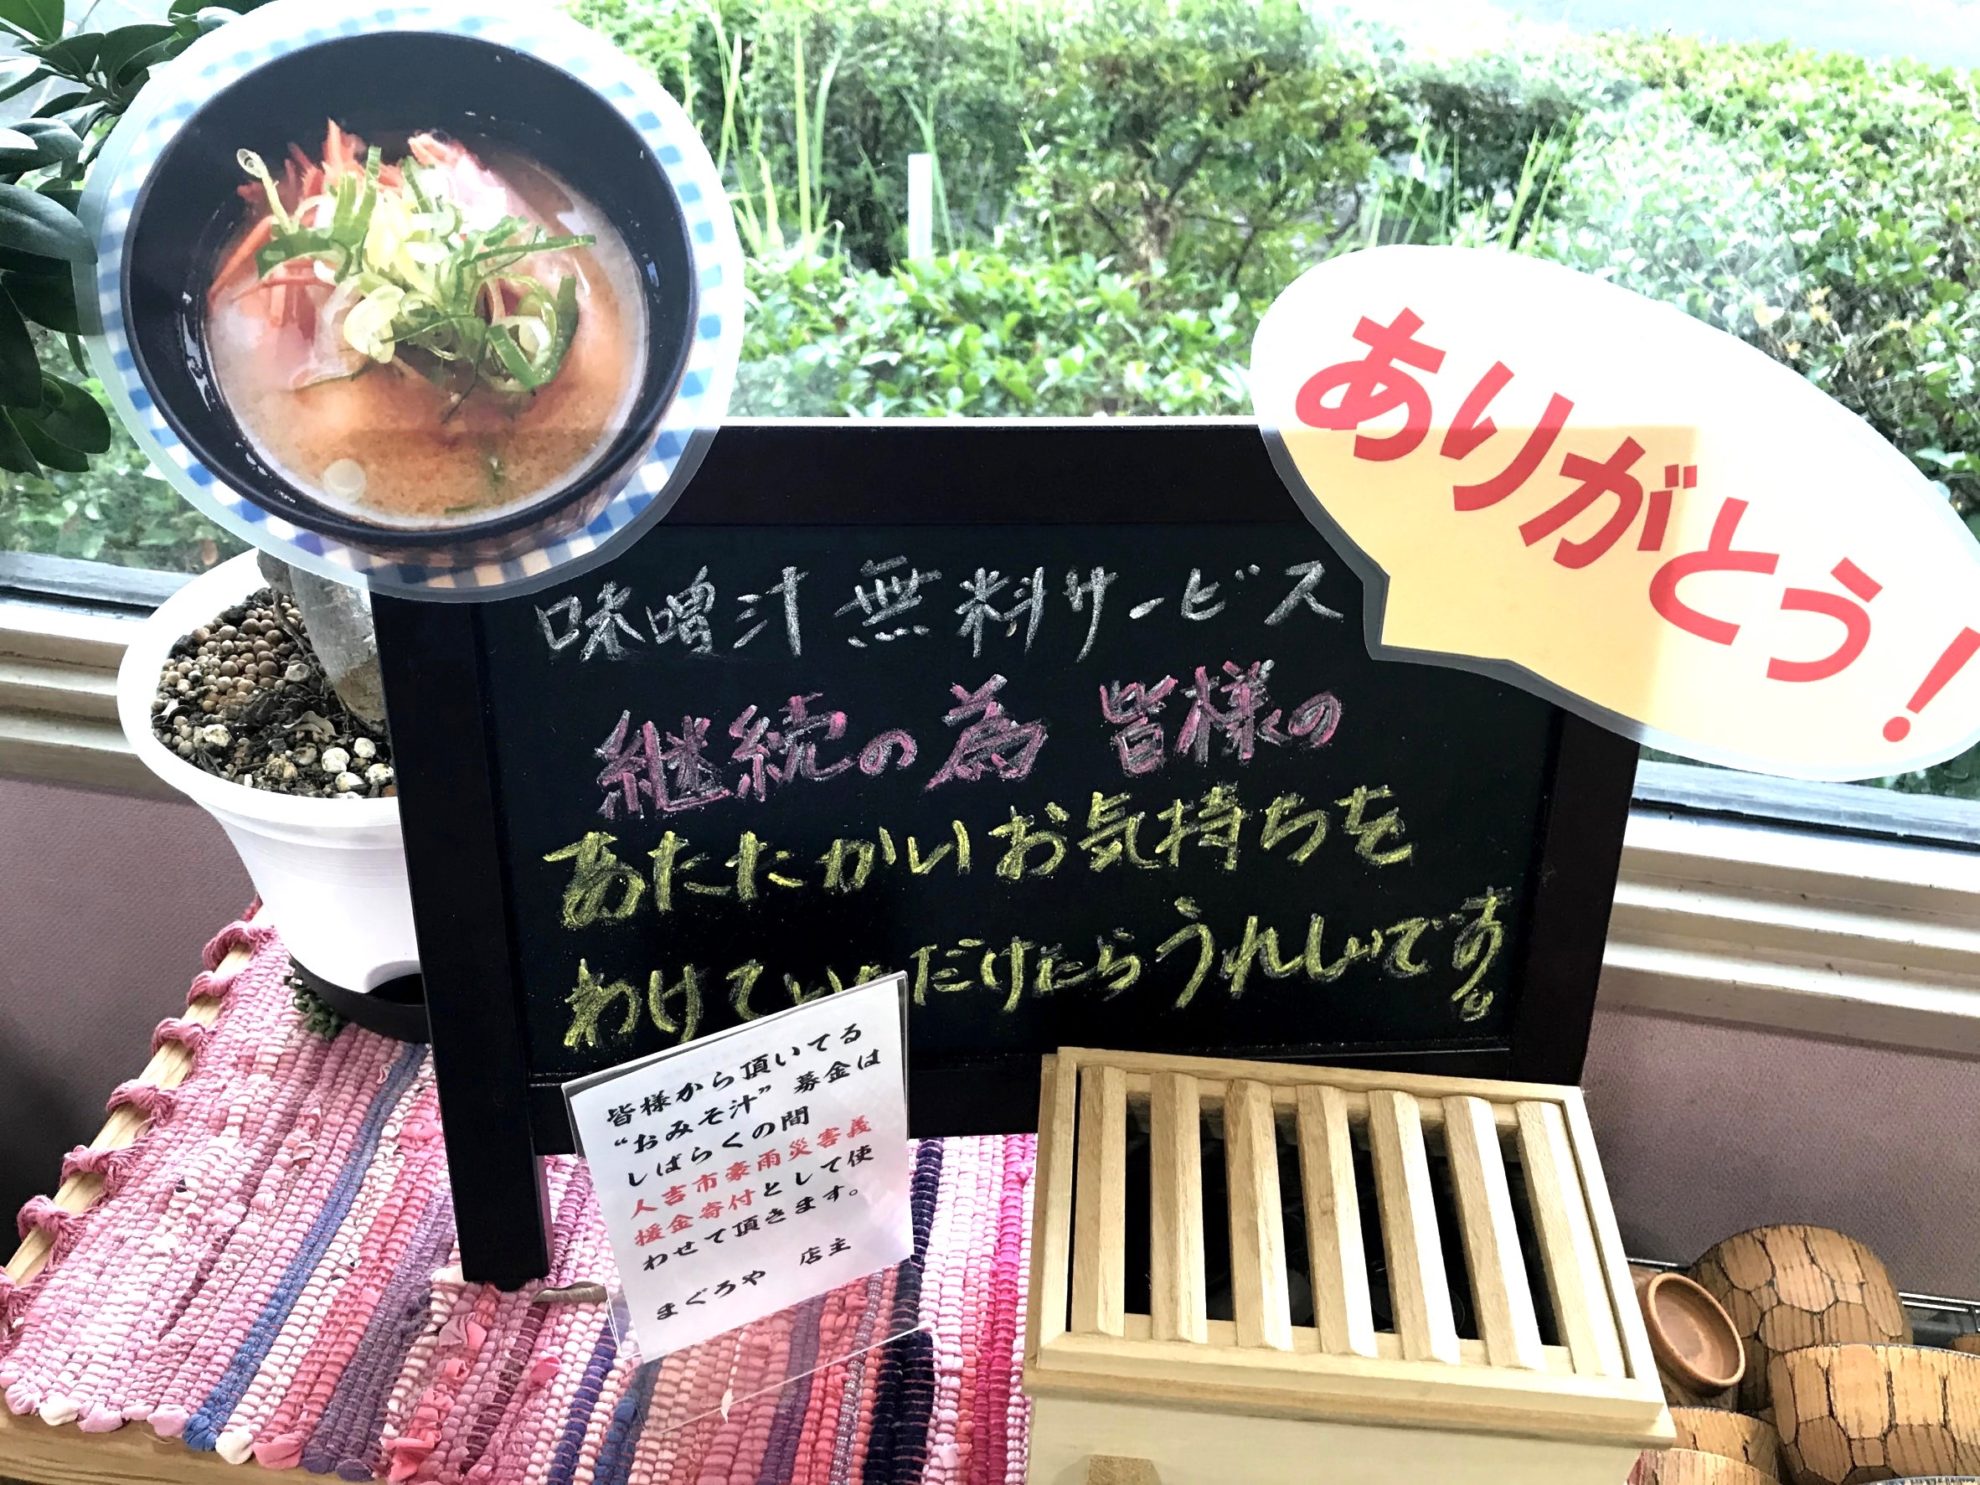 ありがとう!
味噌汁無料サービス
継続の為 皆様の
あたたかいお気持ちを
わけていただけたらうれしいです。
皆様から頂いてる
"おみそ汁"募金は
しばらくの間
人吉市豪雨災害義
援金寄付として使
わせて頂きます。
まぐろや 店主